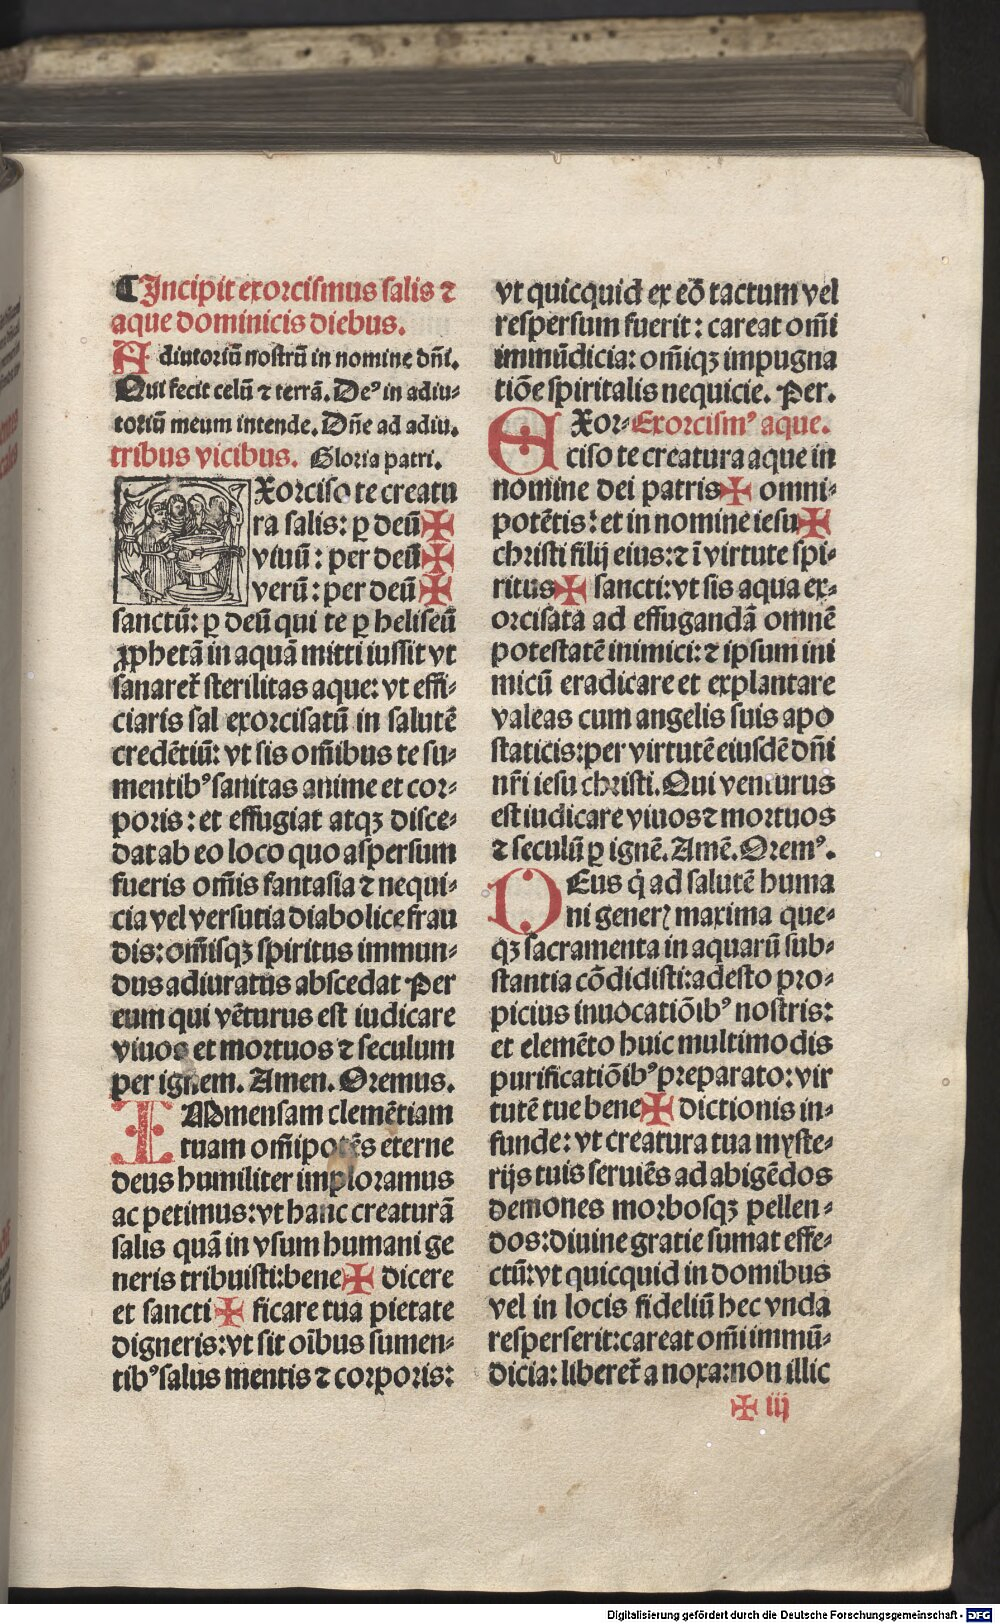 ¶ Incipit exorcismus salis ⁊
aque dominicis diebus.
Adiutoriū nostrū in nomine dñi.
Qui fecit celū ⁊ terrā. Deꝰ in adiu⸗
toriū meum intende. Dñe ad adiu.
tribus vicibus. Gloria patri.
EXorciso te creatu
ra salis: ꝑ deū ✠
viuū: per deū ✠
verū: per deū ✠
sanctū: ꝑ deū qui te ꝑ heliseū
ꝓphetā in aquā mitti iussit vt
sanaret̄ sterilitas aque: vt effi⸗
ciaris sal exorcisatū in salutē
credētiū: vt sis om̄ibus te su⸗
mentibꝰ sanitas anime et cor⸗
poris: et effugiat atqꝫ disce⸗
dat ab eo loco quo aspersum
fueris om̄is fantasia ⁊ nequi⸗
cia vel versutia diabolice frau
dis: om̄isqꝫ spiritus immun⸗
dus adiuratus abscedat Per
eum qui vēturus est iudicare
viuos et mortuos ⁊ seculum
per ignem. Amen. Oremus.
IMmensam clemētiam
tuam om̄ipotēs eterne
deus humiliter imploramus
ac petimus: vt hanc creaturā
salis quā in vsum humani ge
neris tribuisti: bene ✠ dicere
et sancti ✠ ficare tua pietate
digneris: vt sit oībus sumen⸗
tibꝰ salus mentis ⁊ corporis:
vt quicquid ex eō tactum vel
respersum fuerit: careat om̄i
immūdicia: om̄iqꝫ impugna
tiōe spiritalis nequicie. Per.
EXor⸗ Exorcismꝰ aque.
ciso te creatura aque in
nomine dei patris ✠ omni⸗
potētis: et in nomine iesu ✠
christi filij eius: ⁊ ī virtute spi⸗
ritus ✠ sancti: vt sis aqua ex⸗
orcisata ad effugandā omnē
potestatē inimici: ⁊ ipsum ini
micū eradicare et explantare
valeas cum angelis suis apo
staticis: per virtutē eiusdē dñi
nr̄i iesu christi. Qui venturus
est iudicare viuos ⁊ mortuos
⁊ seculū ꝑ ignē. Amē. Oremꝰ.
DEus q̇ ad salutē huma
ni generꝭ maxima que⸗
qꝫ sacramenta in aquarū sub⸗
stantia cōdidisti: adesto pro⸗
picius inuocatiōibꝰ nostris:
et elemēto huic multimodis
purificatiōibꝰ preparato: vir
tutē tue bene ✠ dictionis in⸗
funde: vt creatura tua myste⸗
rijs tuis seruiēs ad abigēdos
demones morbosqꝫ pellen⸗
dos: diuine gratie sumat effe⸗
ctū: vt quicquid in domibus
vel in locis fideliū hec vnda
resperserit: careat om̄i immū⸗
dicia: liberet̄ a noxa: non illic
✠ iij
Digitalisierung gefördert durch die Deutsche Forschungsgemeinschaft - DFG